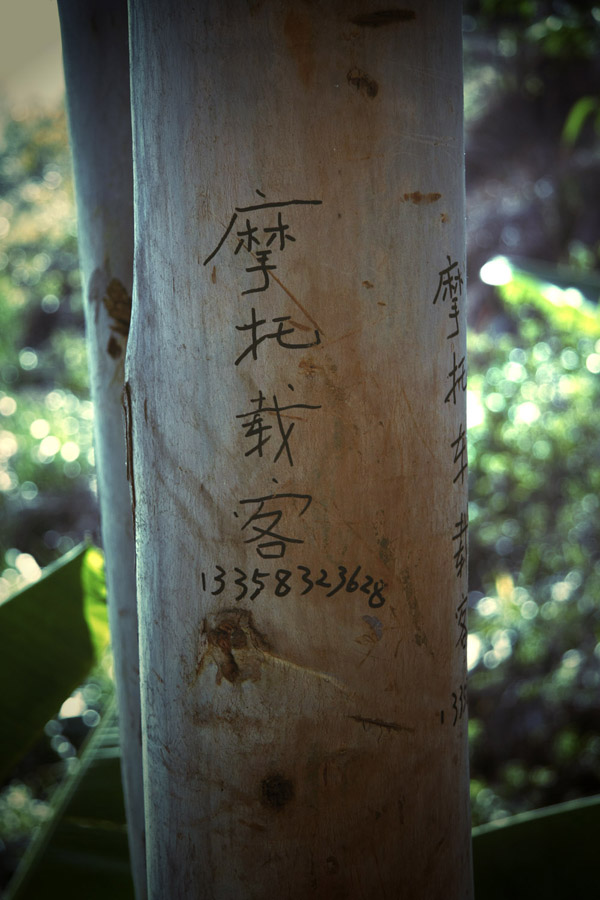 摩托载客
13358323628
摩托车载客
133